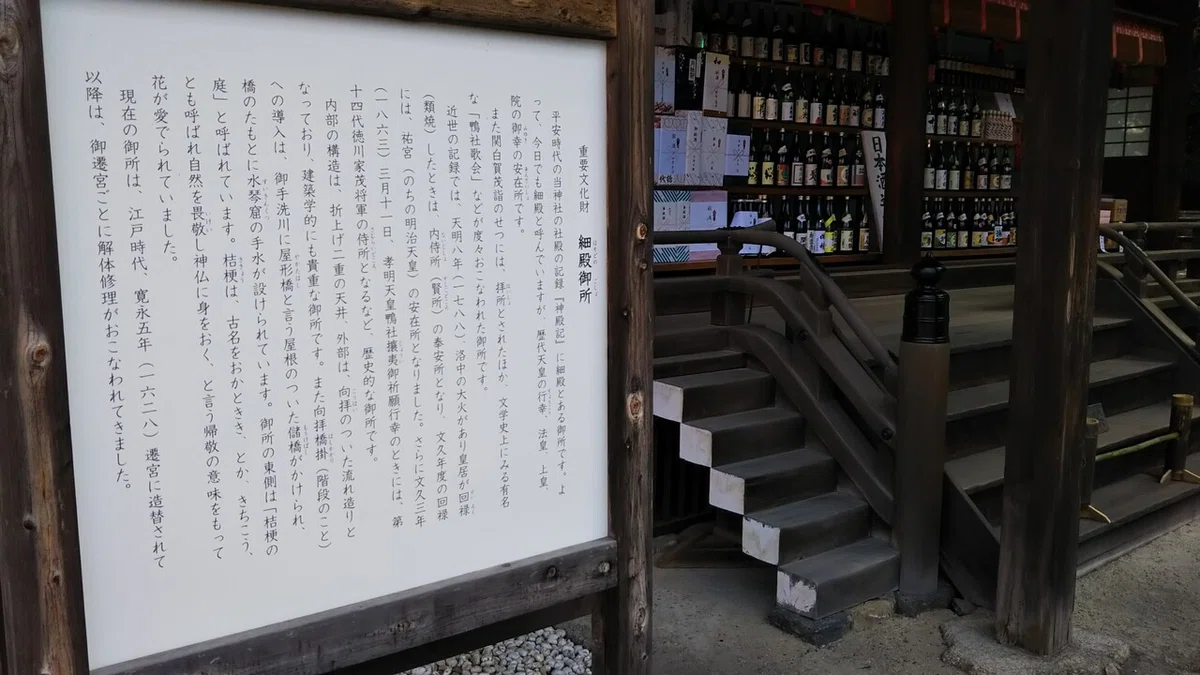 重要文化財 細殿御所
平安時代の当神社の社殿の記録『神殿記』に細殿とある御所です。よ
って、今日でも細殿と呼んでいますが、歴代天皇の行幸、法皇、上皇、
院の御幸の安在所です。
また関白賀茂詣のせつには、拝所とされたほか、文学史上にみる有名
な「鴨社歌会」などが度々おこなわれた御所です。
近世の記録では、天明八年(一七八八)、洛中の大火があり皇居が回禄
(類焼)したときは、内侍所(賢所)の奉安所となり、文久年度の回禄
には、祐宮(のちの明治天皇)の安在所となりました。さらに文久三年
(一八六三)三月十一日、孝明天皇鴨社攘夷御祈願行幸のときには、第
十四代徳川家茂将軍の侍所となるなど、歴史的な御所です。
内部の構造は、折上げ二重の天井、外部は、向拝のついた流れ造りと
なっており、建築学的にも貴重な御所です。また向拝橋掛(階段のこと)
への導入は、御手洗川に屋形橋と言う屋根のついた儲橋がかけられ、
橋のたもとに水琴窟の手水が設けられています。御所の東側は「桔梗の
庭」と呼ばれています。桔梗は、古名をおかととき、とか、きちこう、
とも呼ばれ自然を畏敬し神仏に身をおく、と言う帰敬の意味をもって
花が愛でられていました。
現在の御所は、江戸時代、寛永五年(一六二八)遷宮に造替されて
以降は、御遷宮ごとに解体修理がおこなわれてきました。
日本酒